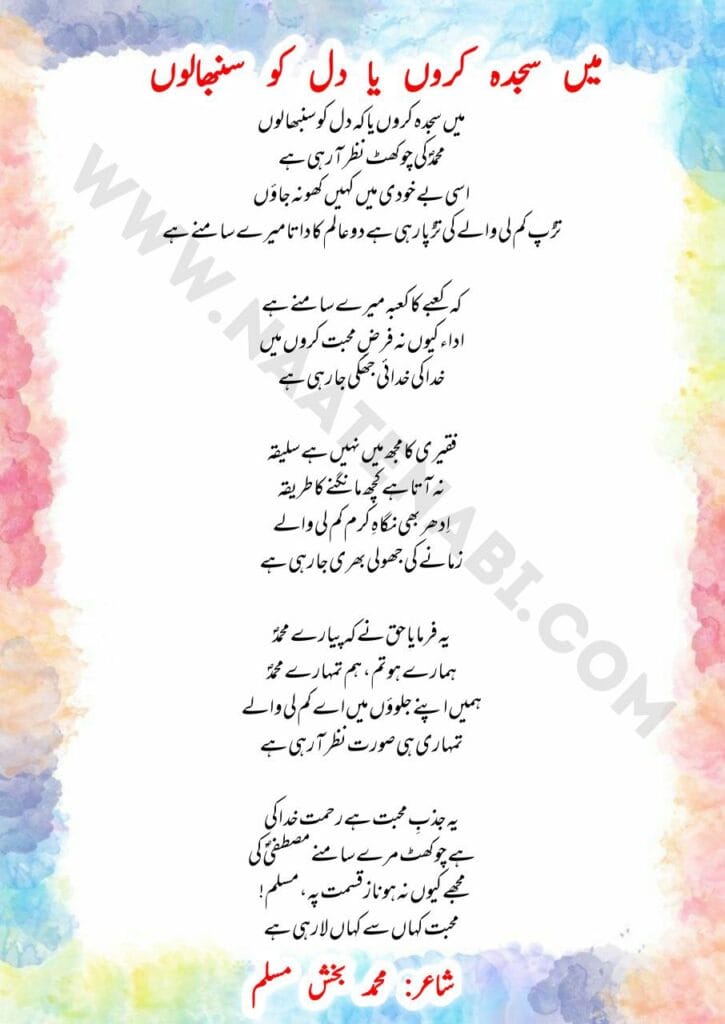 میں سجدہ کروں یا دل کو سنبھالوں
میں سجدہ کروں یا کہ دل کو سنبھالوں
محمدؐ کی چوکھٹ نظر آ رہی ہے
اسی بے خودی میں کہیں کھو نہ جاؤں
تڑپ کم لی والے کی تڑپا رہی ہے دو عالم کا داتا میرے سامنے ہے
کہ کعبے کا کعبہ میرے سامنے ہے
اداء کیوں نہ فرض محبت کروں میں
خدا کی خدائی جھکی جا رہی ہے
فقیری کا مجھ میں نہیں ہے سلیقہ
نہ آتا ہے کچھ مانگنے کا طریقہ
اِدھر بھی نگاہِ کرم کم لی والے
زمانے کی جھولی بھری جا رہی ہے
یہ فرمایا حق نے کہ پیارے محمدؐ
ہمارے ہو تم، ہم تمہارے محمدؐ
ہمیں اپنے جلوؤں میں اے کم لی والے
تمہاری ہی صورت نظر آ رہی ہے
یہ جذبِ محبت ہے رحمت خدا کی
ہے چوکھٹ مرے سامنے مصطفیٰؐ کی
مجھے کیوں نہ ہو ناز قسمت پہ، مسلم!
محبت کہاں سے کہاں لا رہی ہے
شاعر: محمد بخش مسلم
WWW.NAATENABI.COM